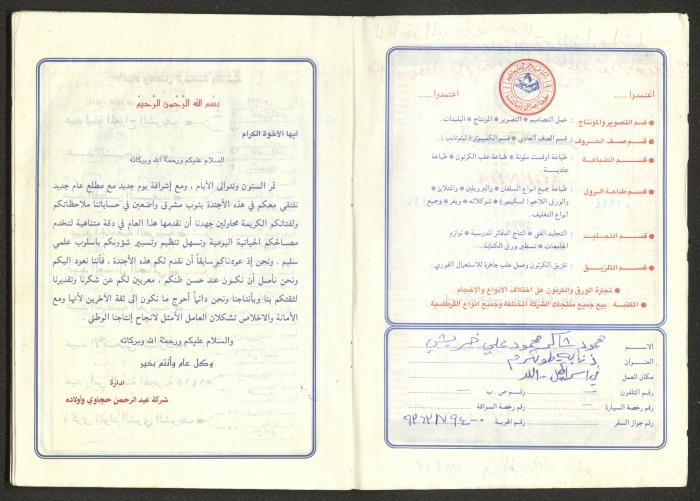 بسم الله الرحمن الرحيم
ايها الأخوة الكرام
السلام عليكم ورحمة الله وبركاته
تمر السنون وتتوالى الأيام ، ومع إشراقة يوم جديد مع مطلع عام جديد
نلتقي معكم في هذه الأجندة بثوب مشرق واضعين في حساباتنا ملاحظاتكم
ولفتاتكم الكريمة محاولين جهدنا أن نقدمها هذا العام في دقة متناهية لتخدم
مصالحكم الحياتية اليومية وتسهل تنظيم وتسيير شؤونكم باسلوب علمي
سليم . ونحن إذ عودناكم سابقاً أن نقدم لكم هذه الأجندة ، فأننا نعود اليكم
ونحن نأصل أن نكون عند حسن ظنكم ، معربين لكم عن شكرنا وتقديرنا
لثقتكم بنا وبأنتاجنا ونحن دائماً أحوج ما نكون الى ثقة الآخرين لأنها ومع
الأمانة والاخلاص تشكلان العامل الأمثل لانجاح إنتاجنا الوطني .
والسلام عليكم ورحمة الله وبركاته
وكل عام وأنتم بخير
ادارة
شركة عبد الرحمن حجاوي وأولاده
اعتمدوا ..... اعتمدوا .....
قسم التصوير والمونتاج : عمل التصاميم * التصوير * المونتاج * البليتات .
قسم صف الحروف : قسم الصف العادي * قسم الكمبيوتر ( ليتوتايب ) .
قسم الطباعة : طباعة اوفست ملونة * طباعة علب الكرتون * طباعة
عادية
قسم طباعة الرول : طباعة جميع انواع السلفان * والبروبلين * والمتلايز *
والورق اللاحم ( اسكيمو ) شوكلاته * ويفر * وجميع
انواع التغليف
قسم التجليد : التجليد الفني * انتاج الدفاتر المدرسية * لوازم
الجامعات * تسطير ورق الكتابة .
قسم التلزيق : تلزيق الكرتون وعمل علب جاهزة للاستعمال الفوري .
تجارة الورق والكرتون على اختلاف الانواع والاحجام .
المكتبة : بيع جميع منتجات الشركة المختلفة وجميع انواع القرطاسية
الاسم محمود شاكر محمود علي خريشي
العنوان ذنابة طولكرم
مكان العمل
رقم التلفون رقم ص . ب
رقم رخصة السيارة رقم رخصة السواقة
رقم جواز السفر رقم الهوية